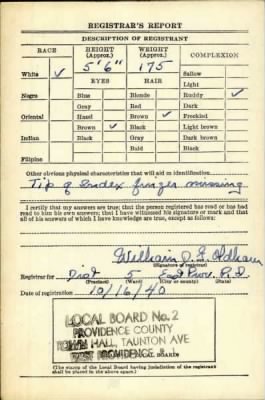 REGISTRAR'S REPORT
DESCRIPTION OF REGISTRANT
RACE HEIGHT (Approx.) WEIGHT (Approx.) COMPLEXION
White ✓ 5' 6" 175 Sallow
EYES HAIR Light
Negro Blue Blonde Ruddy ✓
Gray Red Dark
Oriental Hazel Brown ✓ Freckled
Brown ✓ Black Light brown
Indian Black Gray Dark brown
Bald Black
Filipino
Other obvious physical characteristics that will aid in identification
Tip of Index finger missing
I certify that my answers are true; that the person registered has read or has had
read to him his own answers; that I have witnessed his signature or mark and that
all of his answers of which I have knowledge are true, except as follows:
William D. F. Oldham
(Signature of registrar)
Registrar for Dist 5 East Prov. R.I.
(Precinct) (Ward) (City or county) (State)
Date of registration 10/16/40
LOCAL BOARD No. 2
PROVIDENCE COUNTY
TOWN HALL, TAUNTON AVE
EAST PROVIDENCE R. I.
(The stamp of the Local Board having jurisdiction of the registrant
shall be placed in the above space.)